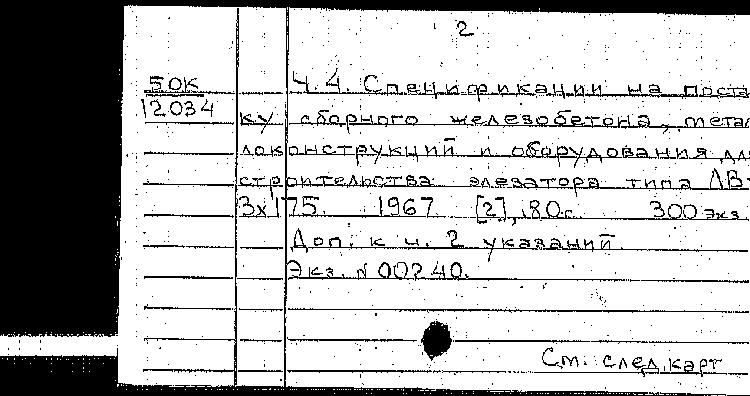 2
50К
12034
Ч. 4. Спецификации на поста
ку сборного железобетона, метал
локонструкций и оборудования для
строительства элеватора типа ЛВ
3х175. 1967 [2], 80 с. 300 экз.
Доп. к ч. 2 указаний.
Экз. N 00240.
См. след. карт